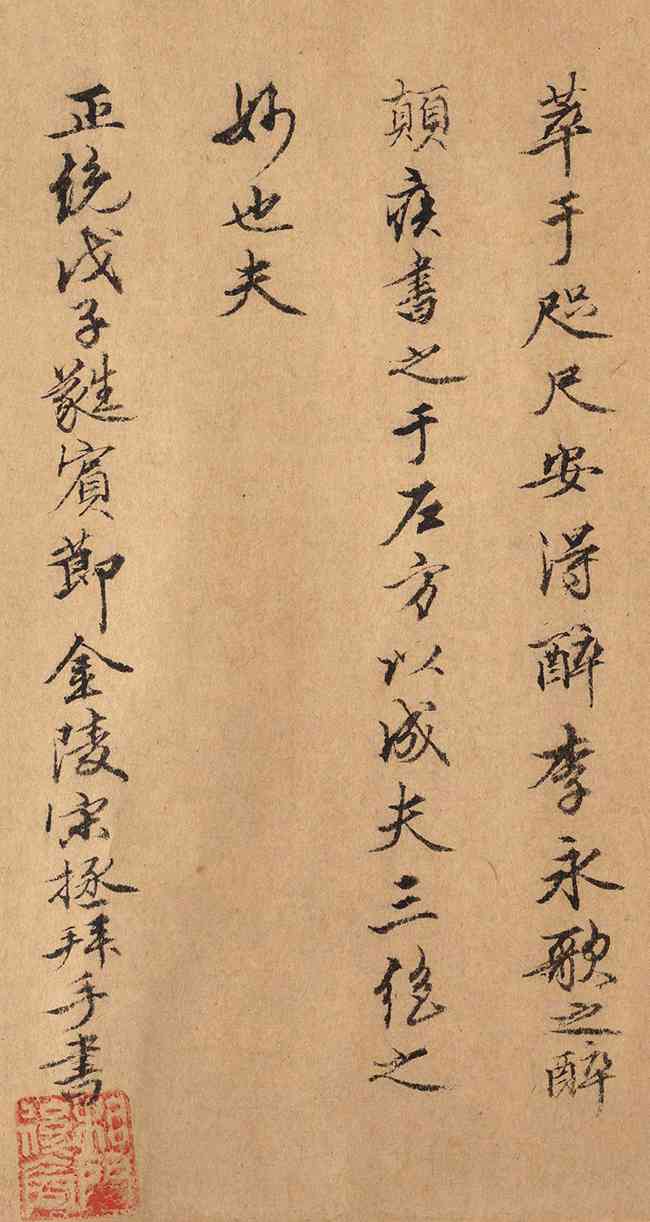 萃于咫尺安得醉李永歌之醉
顛疾書之于左方以成夫三絕之
妙也夫
正統戊子蕤賓節金陵宋拯拜手書